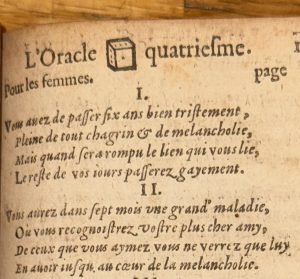 L'Oracle quatriesme.
Pour les femmes.
page
I.
Vous auez de passer six ans bien tristement,
Pleine de tout chagrin & de melancholie,
Mais quand sera rompu le lien qui vous lie,
Le reste de vos iours passerez gayement.
II.
Vous aurez dans sept mois vne grand' maladie,
Où vous recognoistrez vostre plus cher amy,
De ceux que vous aymez vous ne verrez que luy
En auoir iusqu'au cœur de la melancholie.